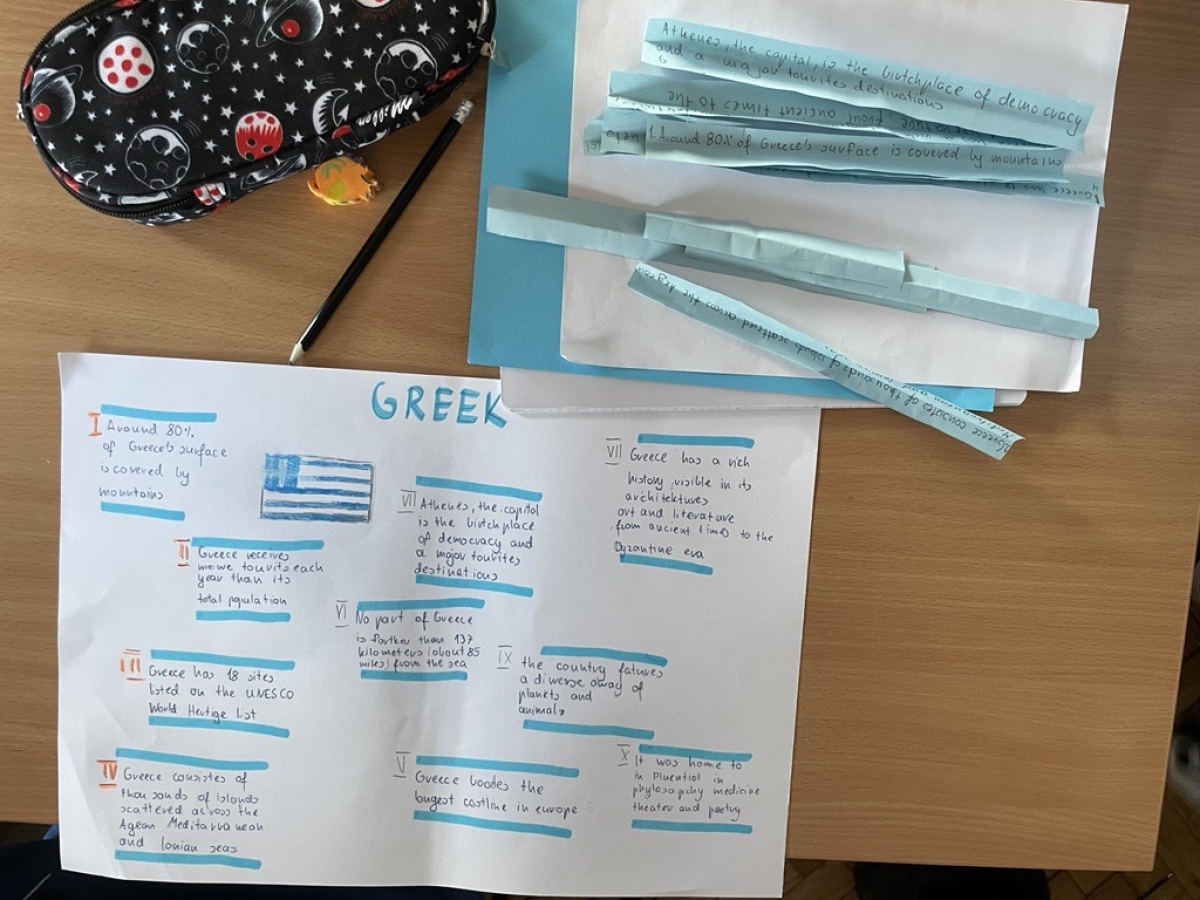 Milan
Athenes, the capital, is the birtchplace of democracy
and a major tourites destinations
from ancient times to the
1. Around 80% of Greece's surface is covered by mountains
Greece was
Greece consistes of thousands of islands scatterd across the Aegean
GREEK
I Around 80%
of Greece's surface
is covered by
mountains
II Greece receives
more tourits each
year than its
total population
III Greece has 18 sites
listed on the UNESCO
World Heritige list
IV Greece consistes of
thousands of islands
scattered across the
Agean Meditarranean
and Ionian seas
VII Athenes, the capitol
is the birtchplace
of democracy and
a major tourites
destinations
VI No part of Greece
is farther than 137
kilometers (about 85
miles) from the sea
V Greece boades the
longest costline in europe
VII Greece has a rich
history visible in its
architektures
art and literature
from ancient times to the
Byzantine era
IX the country fatures
a diwerse array of
planets and
animals
X It was home to
in pluential in
phylosopchy medicine
theater and poetry